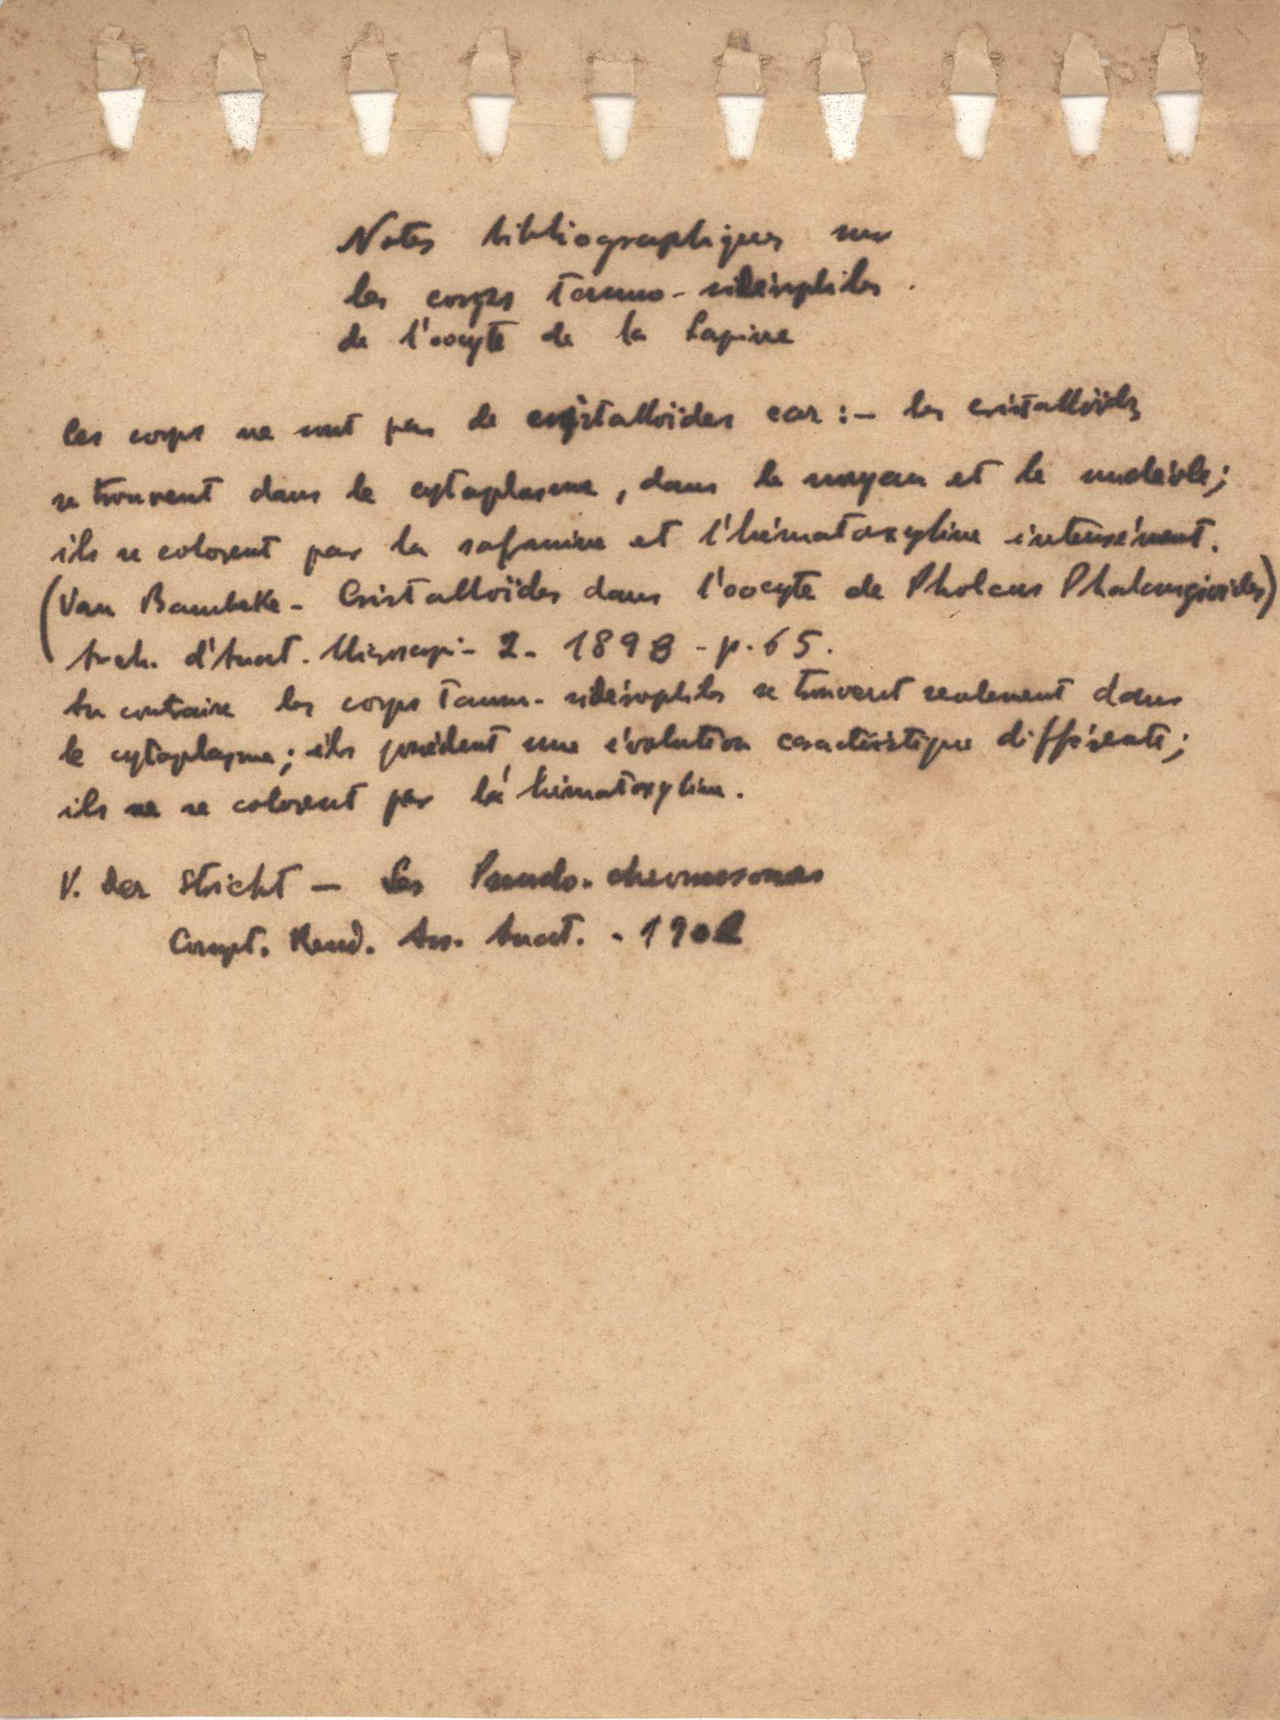 Notes bibliographiques sur
les corps tanno-sidérophiles.
de l'oocyte de la Lapine
Ces corps ne sont pas de cristalloïdes car :- les cristalloïdes
se trouvent dans le cytoplasme, dans le noyau et le nucléole;
ils se colorent par la safranine et l'hématoxyline intensément.
(Van Bambeke - Cristalloïdes dans l'oocyte de Pholcus Phalangioides)
Arch. d'Anat. Microscopi- 2- 1898 - p. 65.
Au contraire les corps Tanno-sidérophiles se trouvent seulement dans
le cytoplasme; ils possèdent une évolution caractéristique différente;
ils ne se colorent par la hématoxyline.
V. der Stricht - Les Pseudo-chromosomes
Compt. Rend. Ass. Anat. - 1902